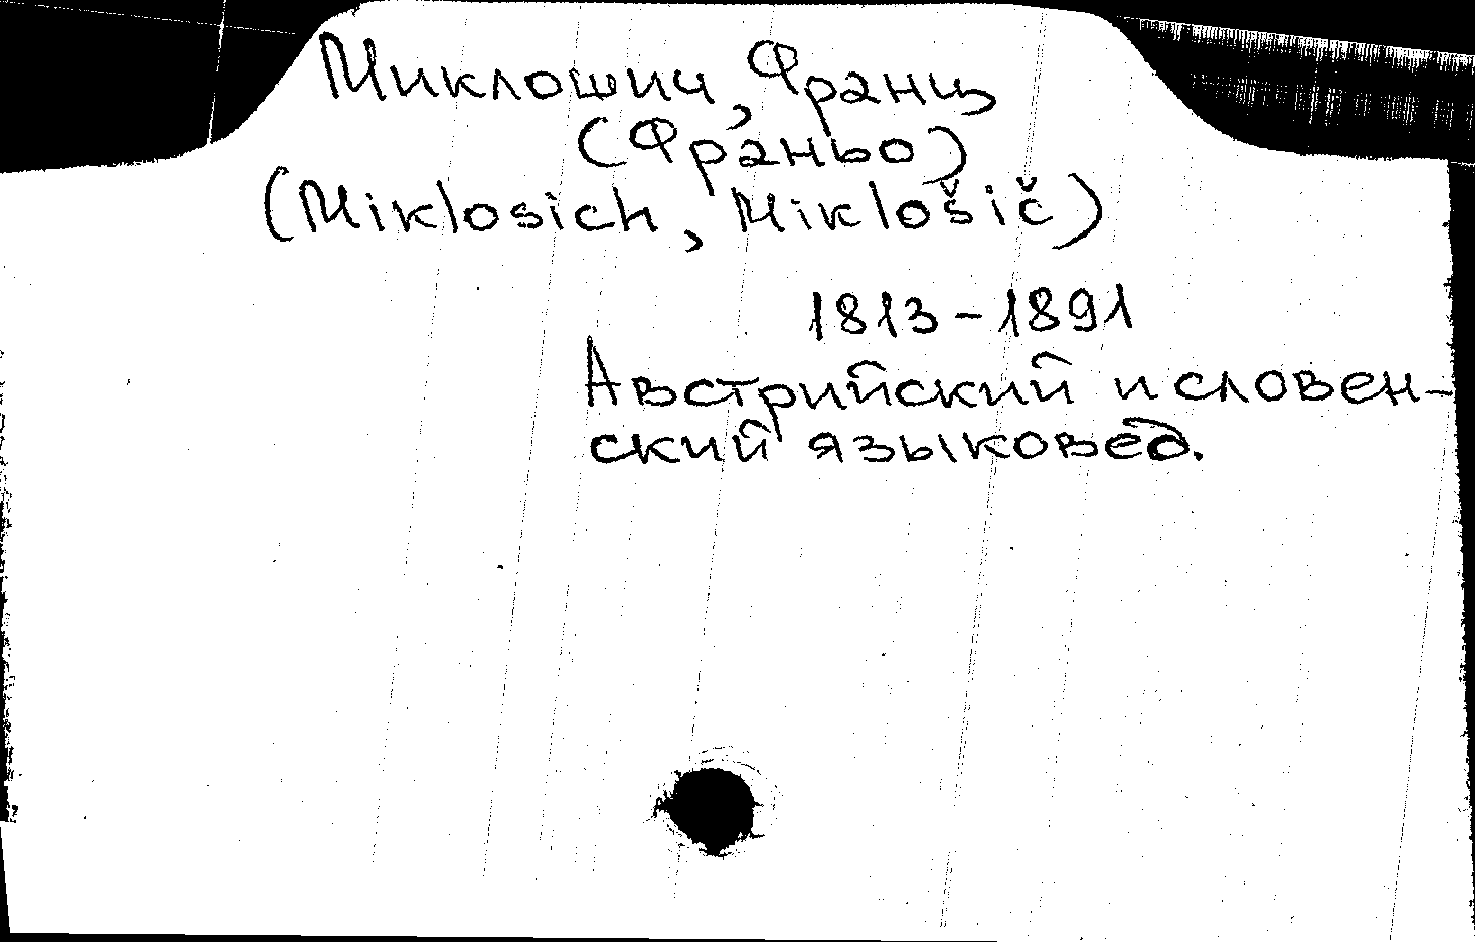 Миклошич, Франц
(Франьо)
(Miklosich, Miklošič)
1813-1891
Австрийский и словен-
ский языковед.